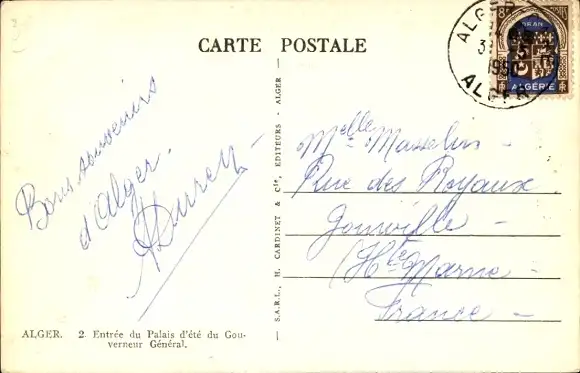 CARTE POSTALE
ORAN
ALGÉRIE
ALGER
1950
ALGER
Bons souvenirs
d'Alger.
Melle Masselin -
Rue des Royaux
Joinville -
(Hte Marne -
France -
S.A.R.L., H. CARDINET & Cie, EDITEURS - ALGER -
ALGER. 2. Entrée du Palais d'été du Gou-
verneur Général.